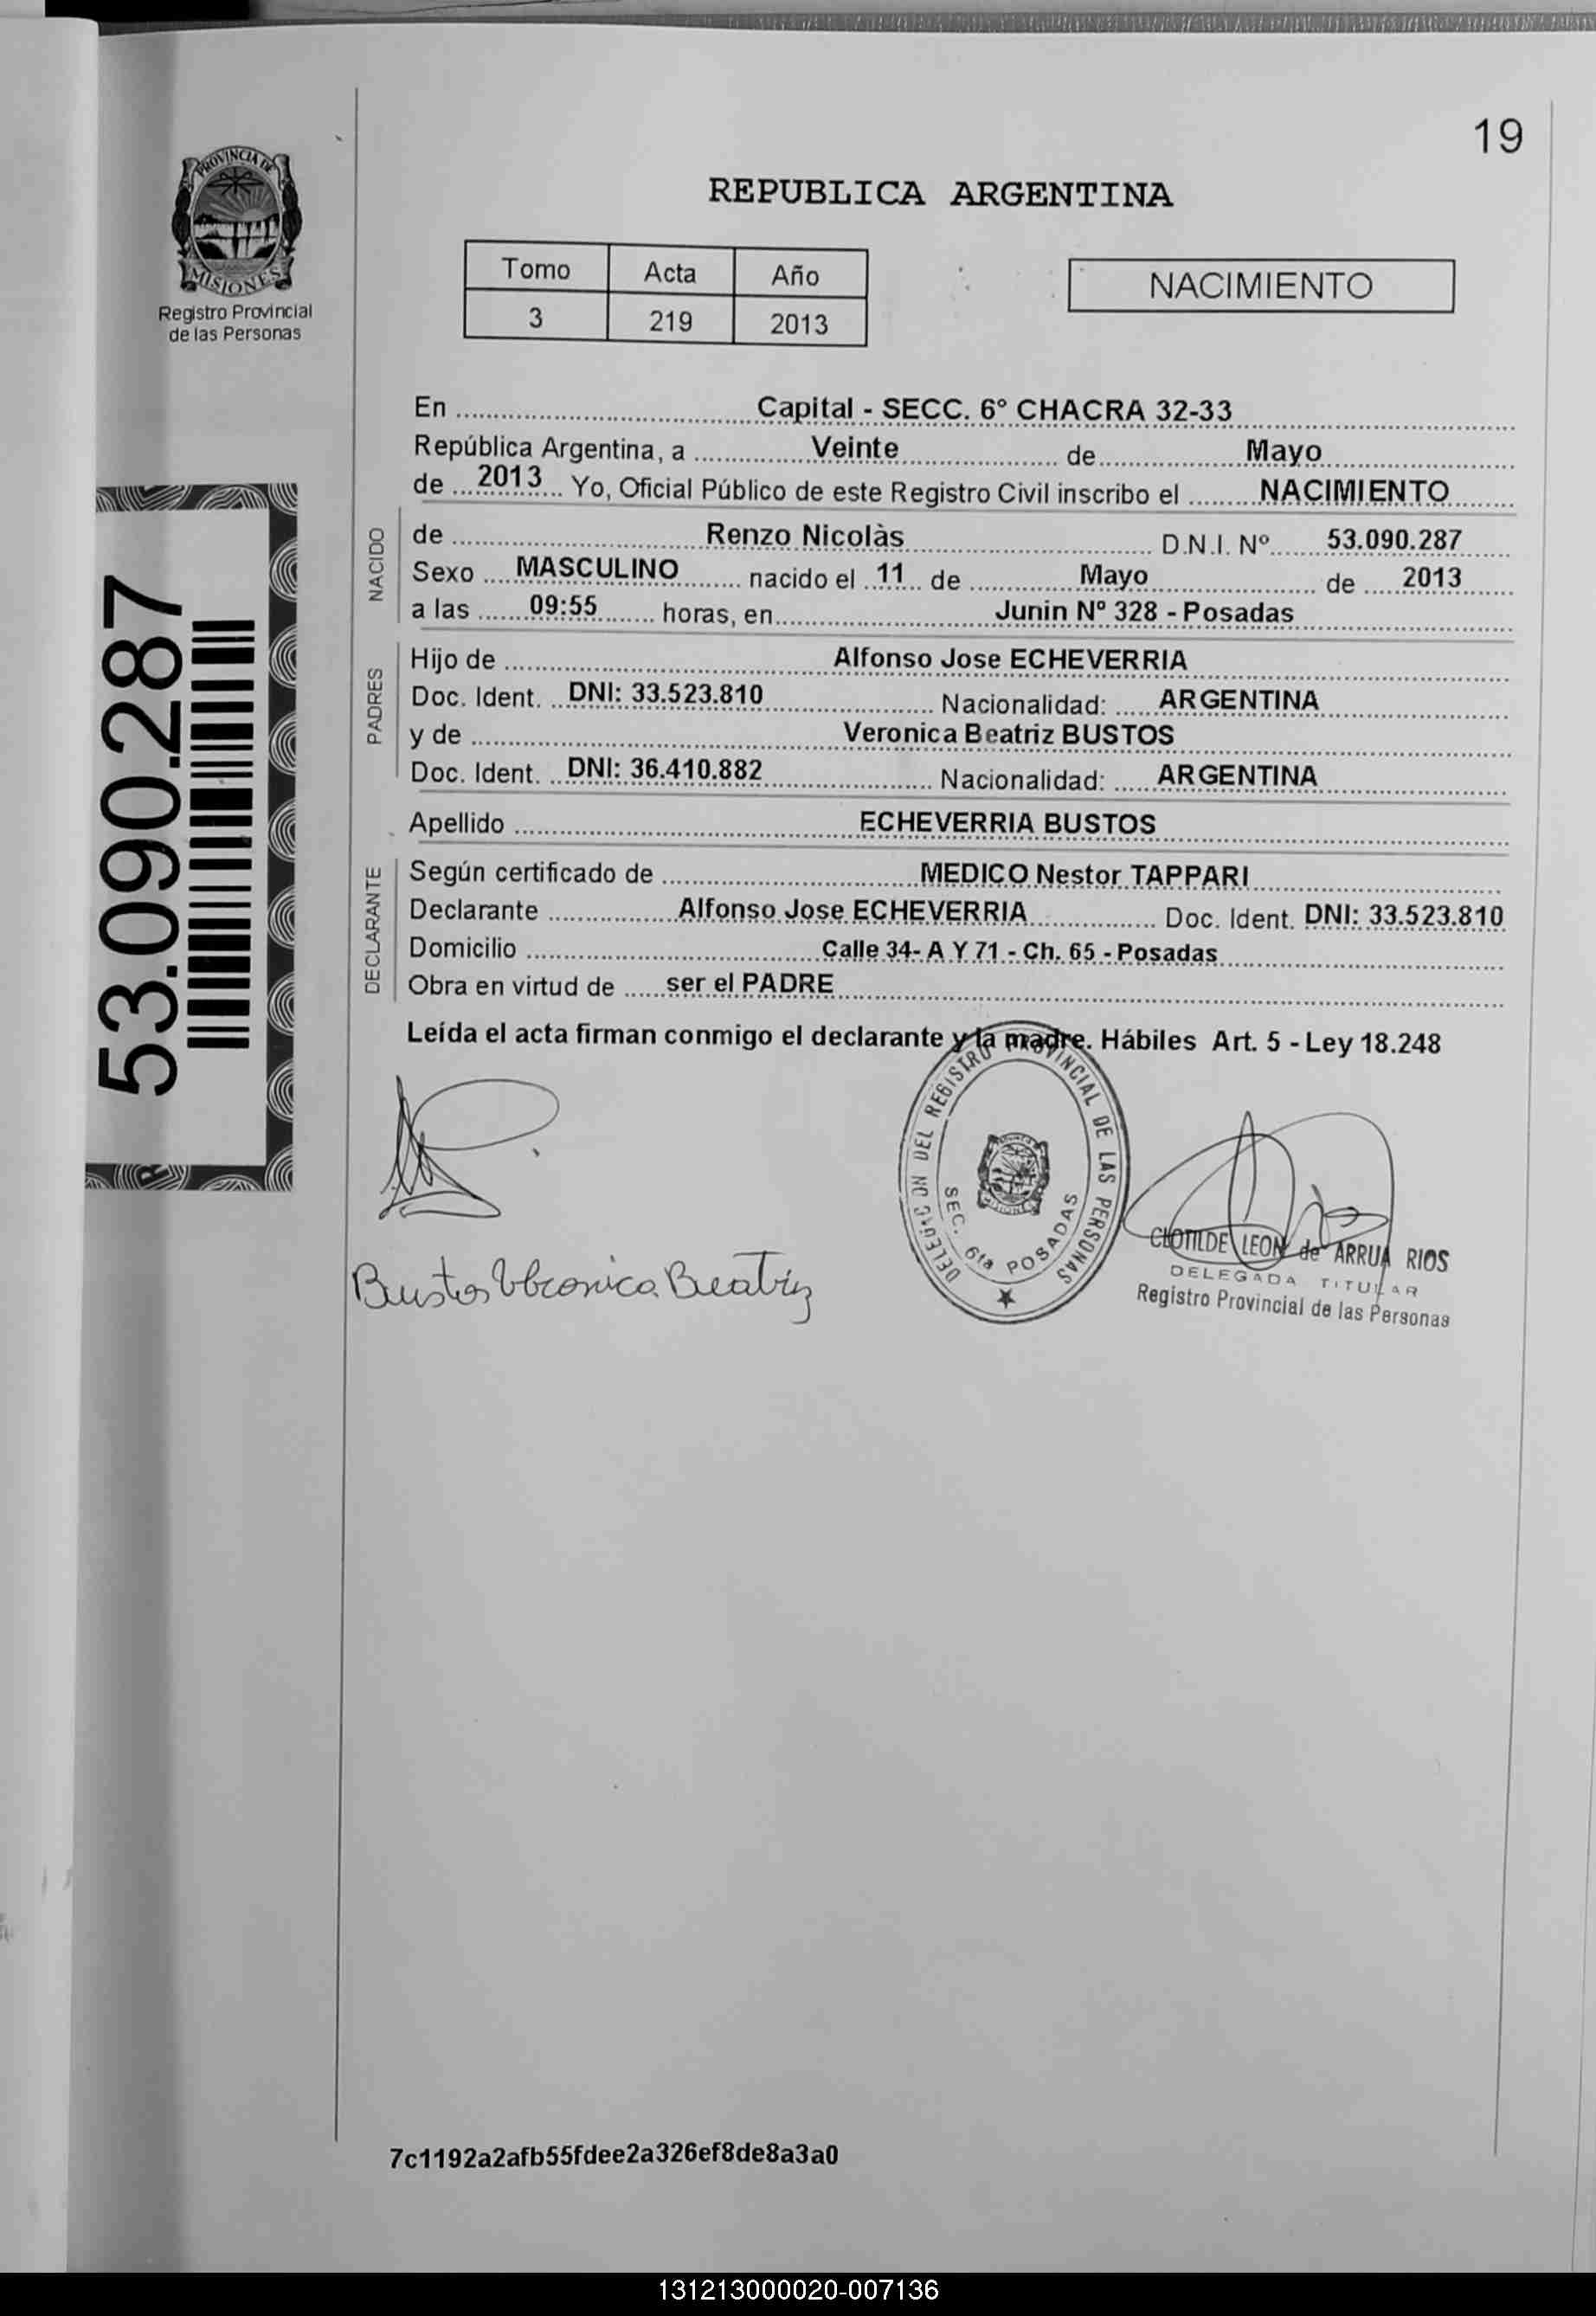 19
PROVINCIA DE
MISIONES
Registro Provincial
de las Personas
REPUBLICA ARGENTINA
Tomo Acta Año
3 219 2013
NACIMIENTO
En Capital - SECC. 6° CHACRA 32-33
República Argentina, a Veinte de Mayo
de 2013 Yo, Oficial Público de este Registro Civil inscribo el NACIMIENTO
NACIDO
de Renzo Nicolàs D.N.I. Nº 53.090.287
Sexo MASCULINO nacido el 11 de Mayo de 2013
a las 09:55 horas, en Junin Nº 328 - Posadas
PADRES
Hijo de Alfonso Jose ECHEVERRIA
Doc. Ident. DNI: 33.523.810 Nacionalidad: ARGENTINA
y de Veronica Beatriz BUSTOS
Doc. Ident. DNI: 36.410.882 Nacionalidad: ARGENTINA
Apellido ECHEVERRIA BUSTOS
DECLARANTE
Según certificado de MEDICO Nestor TAPPARI
Declarante Alfonso Jose ECHEVERRIA Doc. Ident. DNI: 33.523.810
Domicilio Calle 34- A Y 71 - Ch. 65 - Posadas
Obra en virtud de ser el PADRE
Leída el acta firman conmigo el declarante y la madre. Hábiles Art. 5 - Ley 18.248
53.090.287
DELEGACION DEL REGISTRO PROVINCIAL DE LAS PERSONAS
SEC. 6ta POSADAS
Bustos Veronica Beatriz
CLOTILDE LEON de ARRUA RIOS
DELEGADA TITULAR
Registro Provincial de las Personas
7c1192a2afb55fdee2a326ef8de8a3a0
131213000020-007136